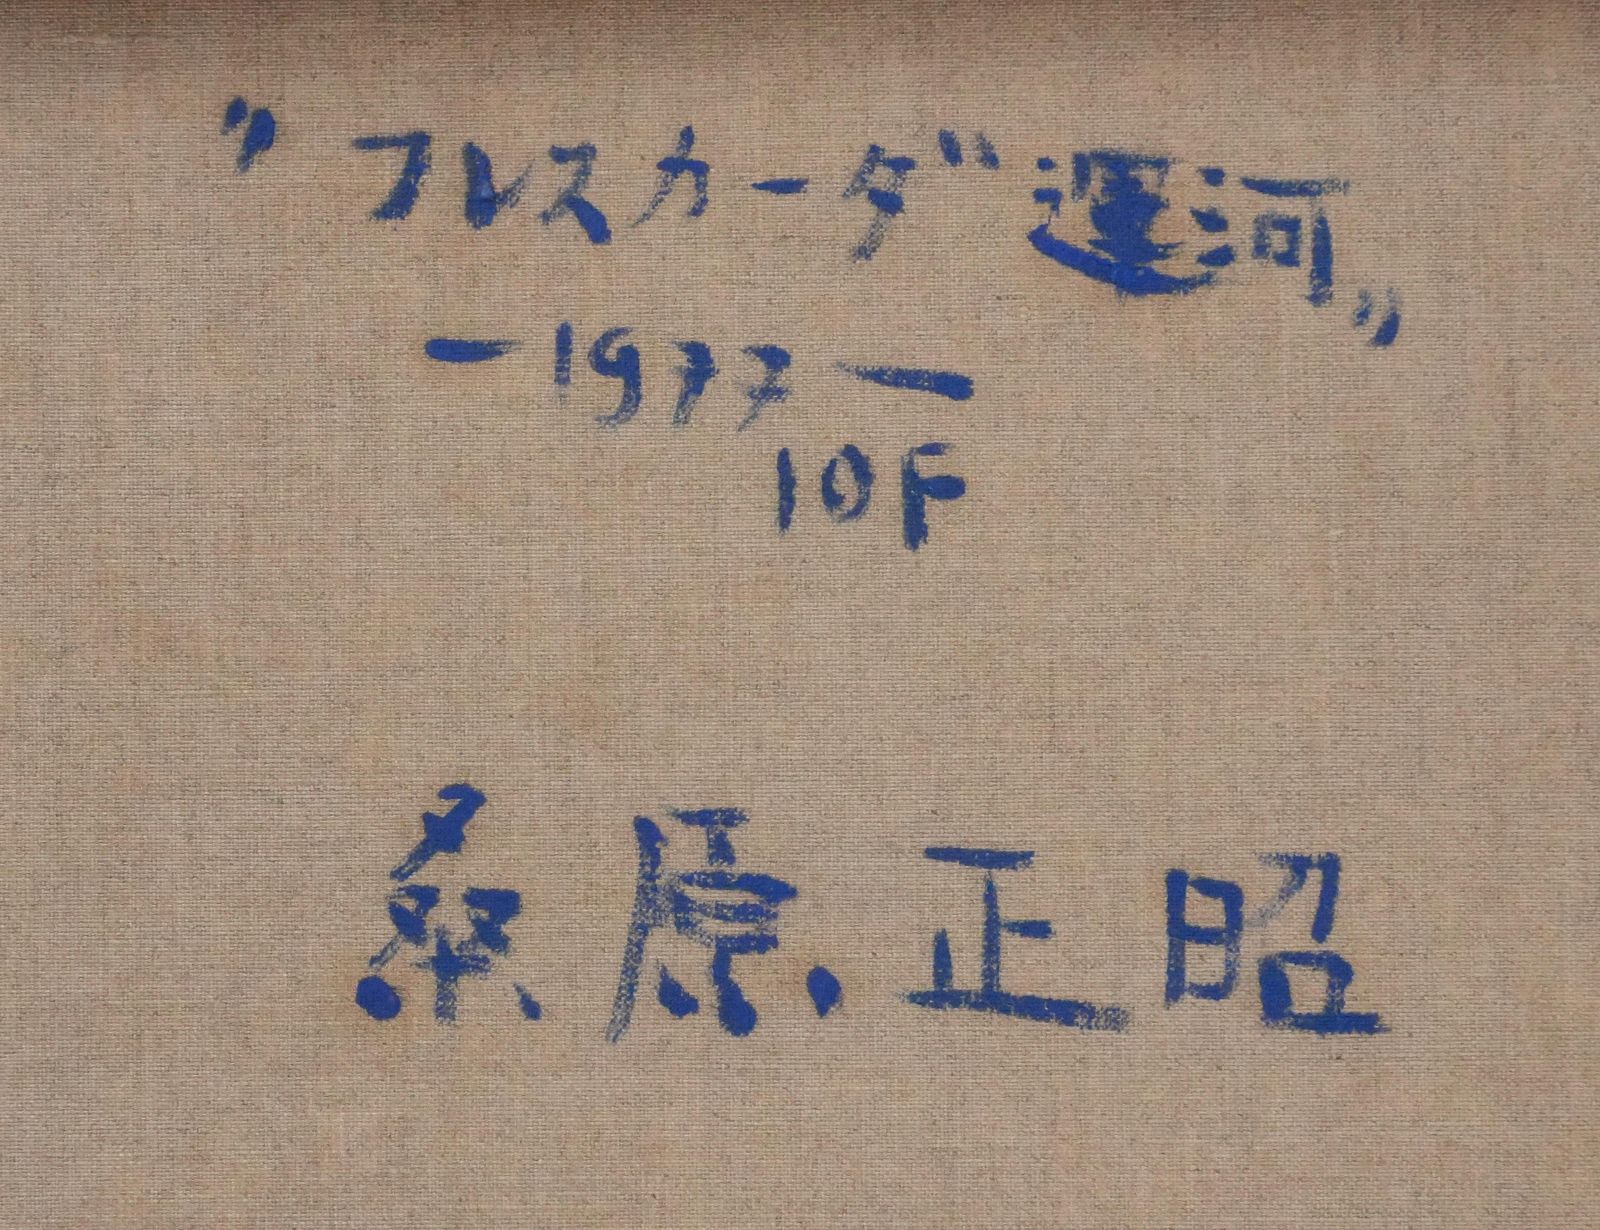 〃フレスカーダ運河〃
—1977—
10F
桑原正昭